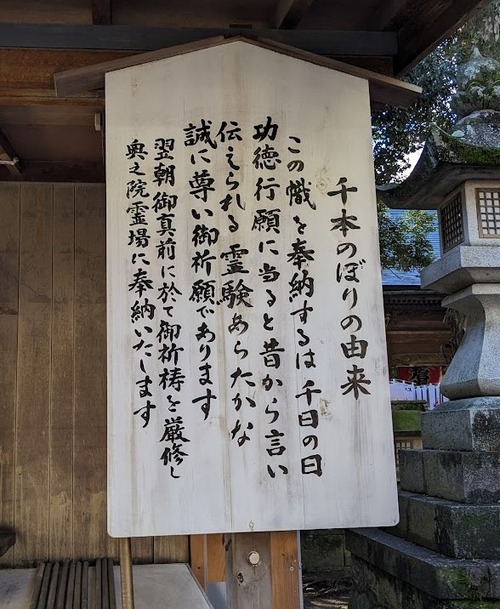 千本のぼりの由来
この幟を奉納するは千日の日
功徳行願に当ると昔から言い
伝えられる霊験あらたかな
誠に尊い御祈願であります
翌朝御真前に於て御祈祷を厳修し
奥之院霊場に奉納いたします